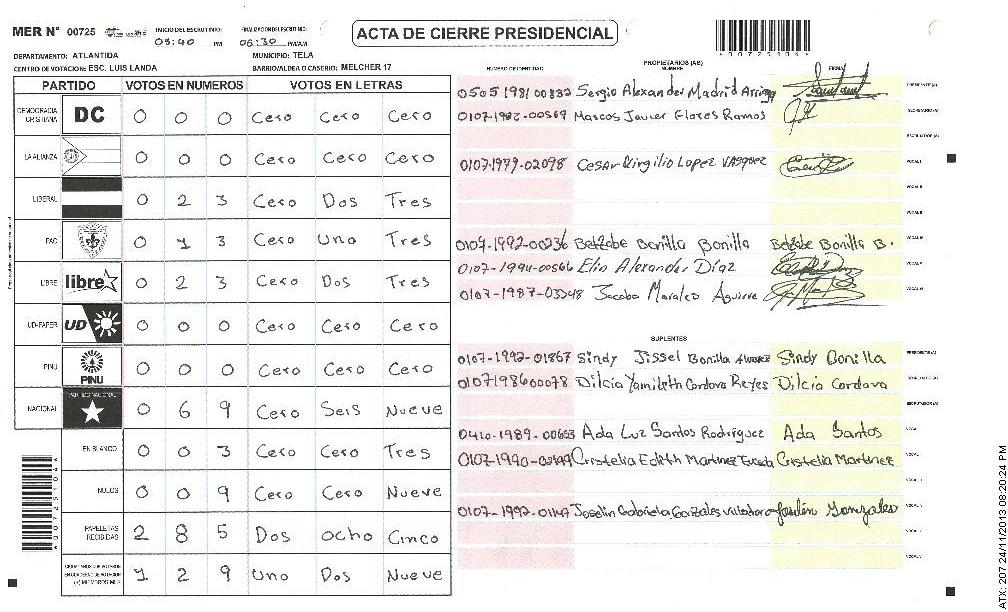 MER N° 00725 INICIO DEL ESCRUTINIO: 05:40 PM FINALIZACION DEL ESCRUTINIO: 06:30 PM/AM ACTA DE CIERRE PRESIDENCIAL
DEPARTAMENTO: ATLANTIDA MUNICIPIO: TELA
CENTRO DE VOTACION: ESC. LUIS LANDA BARRIO/ALDEA O CASERIO: MELCHER 17
PARTIDO VOTOS EN NUMEROS VOTOS EN LETRAS
DEMOCRACIA CRISTIANA DC 0 0 0 Cero Cero Cero
LA ALIANZA 0 0 0 Cero Cero Cero
LIBERAL 0 2 3 Cero Dos Tres
PAC 0 1 3 Cero Uno Tres
LIBRE libre 0 2 3 Cero Dos Tres
UD-FAPER UD 0 0 0 Cero Cero Cero
PINU PINU 0 0 0 Cero Cero Cero
NACIONAL PARTIDO NACIONAL 0 6 9 Cero Seis Nueve
EN BLANCO 0 0 3 Cero Cero Tres
NULOS 0 0 9 Cero Cero Nueve
PAPELETAS RECIBIDAS 2 8 5 Dos ocho Cinco
CIUDADANOS QUE VOTARON EN CUADERNO DE VOTACION (+) MIEMBROS MER 1 2 9 Uno Dos Nueve
PROPIETARIOS (AS)
NUMERO DE IDENTIDAD NOMBRE FIRMA
0505 1981 00832 Sergio Alexander Madrid PRESIDENTE (A)
0107-1982-00569 Marcos Javier Flores Ramos SECRETARIO (A)
ESCRUTADOR (A)
0107-1979-02098 Cesar Virgilio Lopez Vasquez VOCAL I
VOCAL II
VOCAL III
0107-1992-00236 Betzabe Bonilla Bonilla Betzabe Bonilla B. VOCAL IV
0107-1994-00566 Elio Alexander Díaz VOCAL V
0107-1987-03348 Jacobo Morales Aguirre VOCAL VI
SUPLENTES
0107-1992-01867 Sindy Jissel Bonilla Alvarez Sindy Bonilla PRESIDENTE (A)
0107198600078 Dilcia Yamileth Cordova Reyes Dilcia Cordova SECRETARIO (A)
ESCRUTADOR (A)
0410-1989-00653 Ada Luz Santos Rodriguez Ada Santos
0107-1990- Cristelia Edith Martinez Cristelia Martinez
0107-1992-01147 Joselin Gabriela Gonzales Joselin Gonzales
ATX: 207 24/11/2013 08:20:24 PM